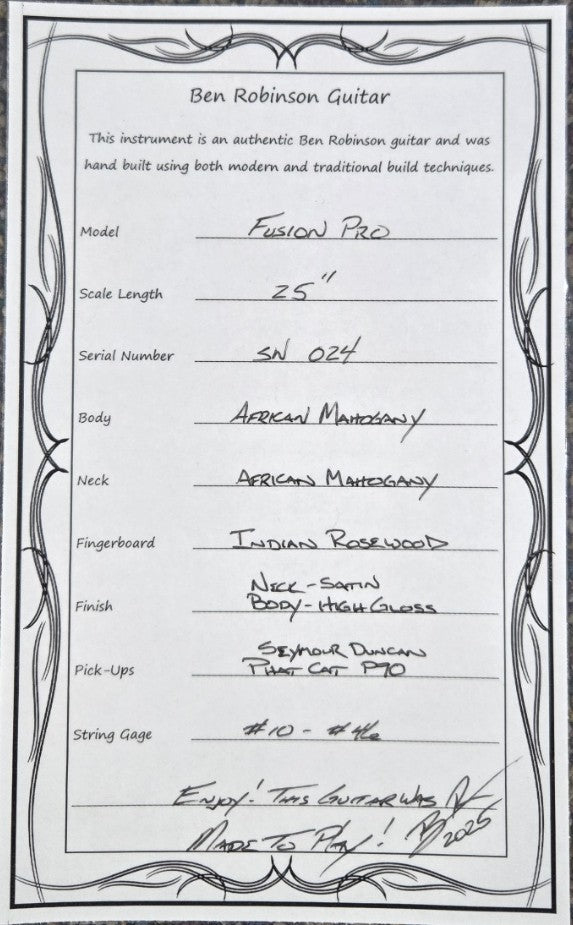 Ben Robinson Guitar
This instrument is an authentic Ben Robinson guitar and was
hand built using both modern and traditional build techniques.
Model FUSION PRO
Scale Length 25"
Serial Number SN 024
Body AFRICAN MAHOGANY
Neck AFRICAN MAHOGANY
Fingerboard INDIAN ROSEWOOD
NECK - SATIN
Finish BODY - HIGH GLOSS
SEYMOUR DUNCAN
Pick-Ups PHAT CAT P90
String Gage #10 - #46
ENJOY! THIS GUITAR WAS
MADE TO PLAY! 2025